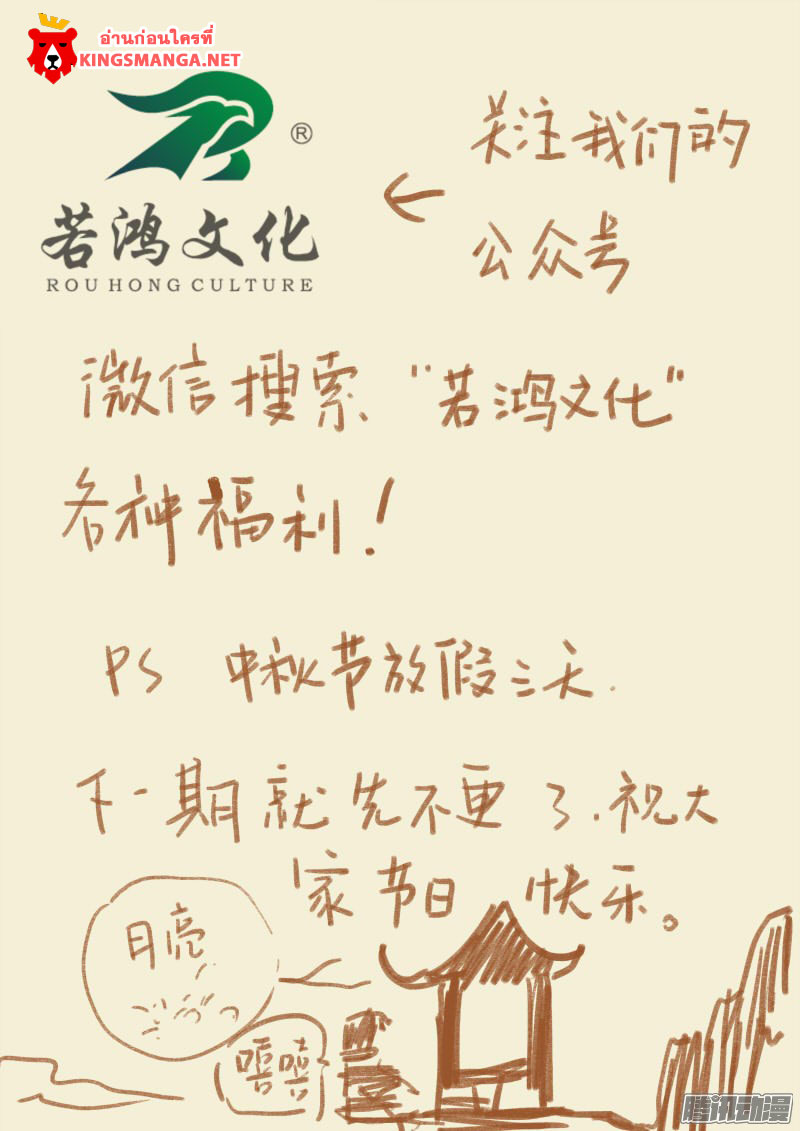 อ่านก่อนใครที่
KINGSMANGA.NET
®
若鸿文化
ROU HONG CULTURE
关注我们的
←
公众号
微信搜索“若鸿文化”
各种福利!
PS 中秋节放假三天.
下一期就先不更了.祝大
家节日 快乐。
月亮
嘻嘻
腾讯动漫